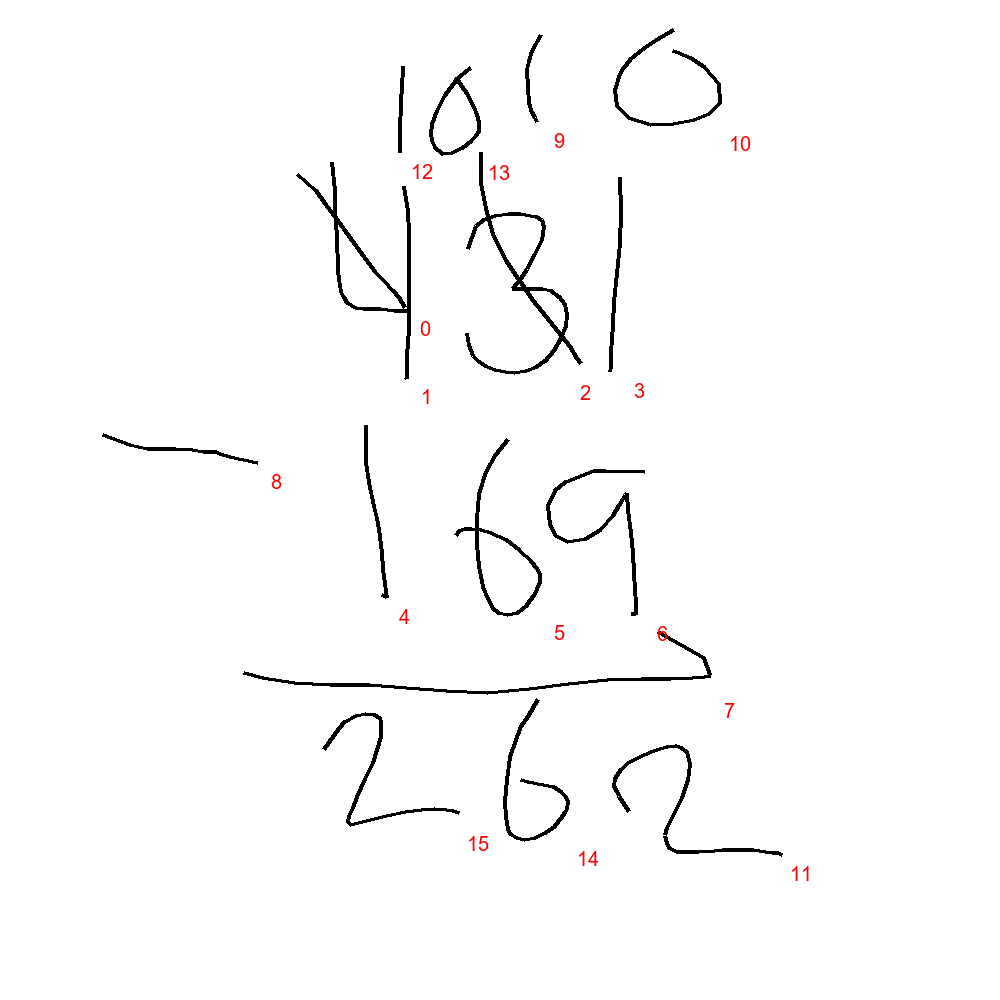 10 10
9 10
12 13
431
0
1 2 3
- 169
8
4 5 6
7
262
15 14 11